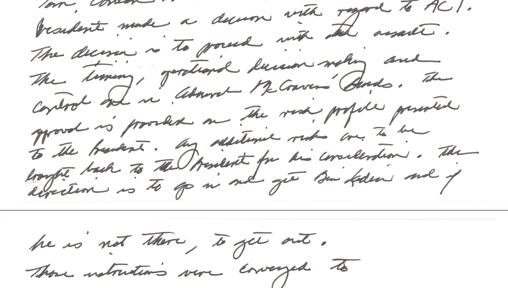 President made a decision with regard to AC1.
The decision is to proceed with the assault.
The timing, operational decision making and
control are in Admiral McRaven's hands. The
approval is provided on the risk profile presented
to the President. Any additional risks are to be
brought back to the President for his consideration. The
direction is to go in and get Bin Laden and if
he is not there, to get out.
Those instructions were conveyed to